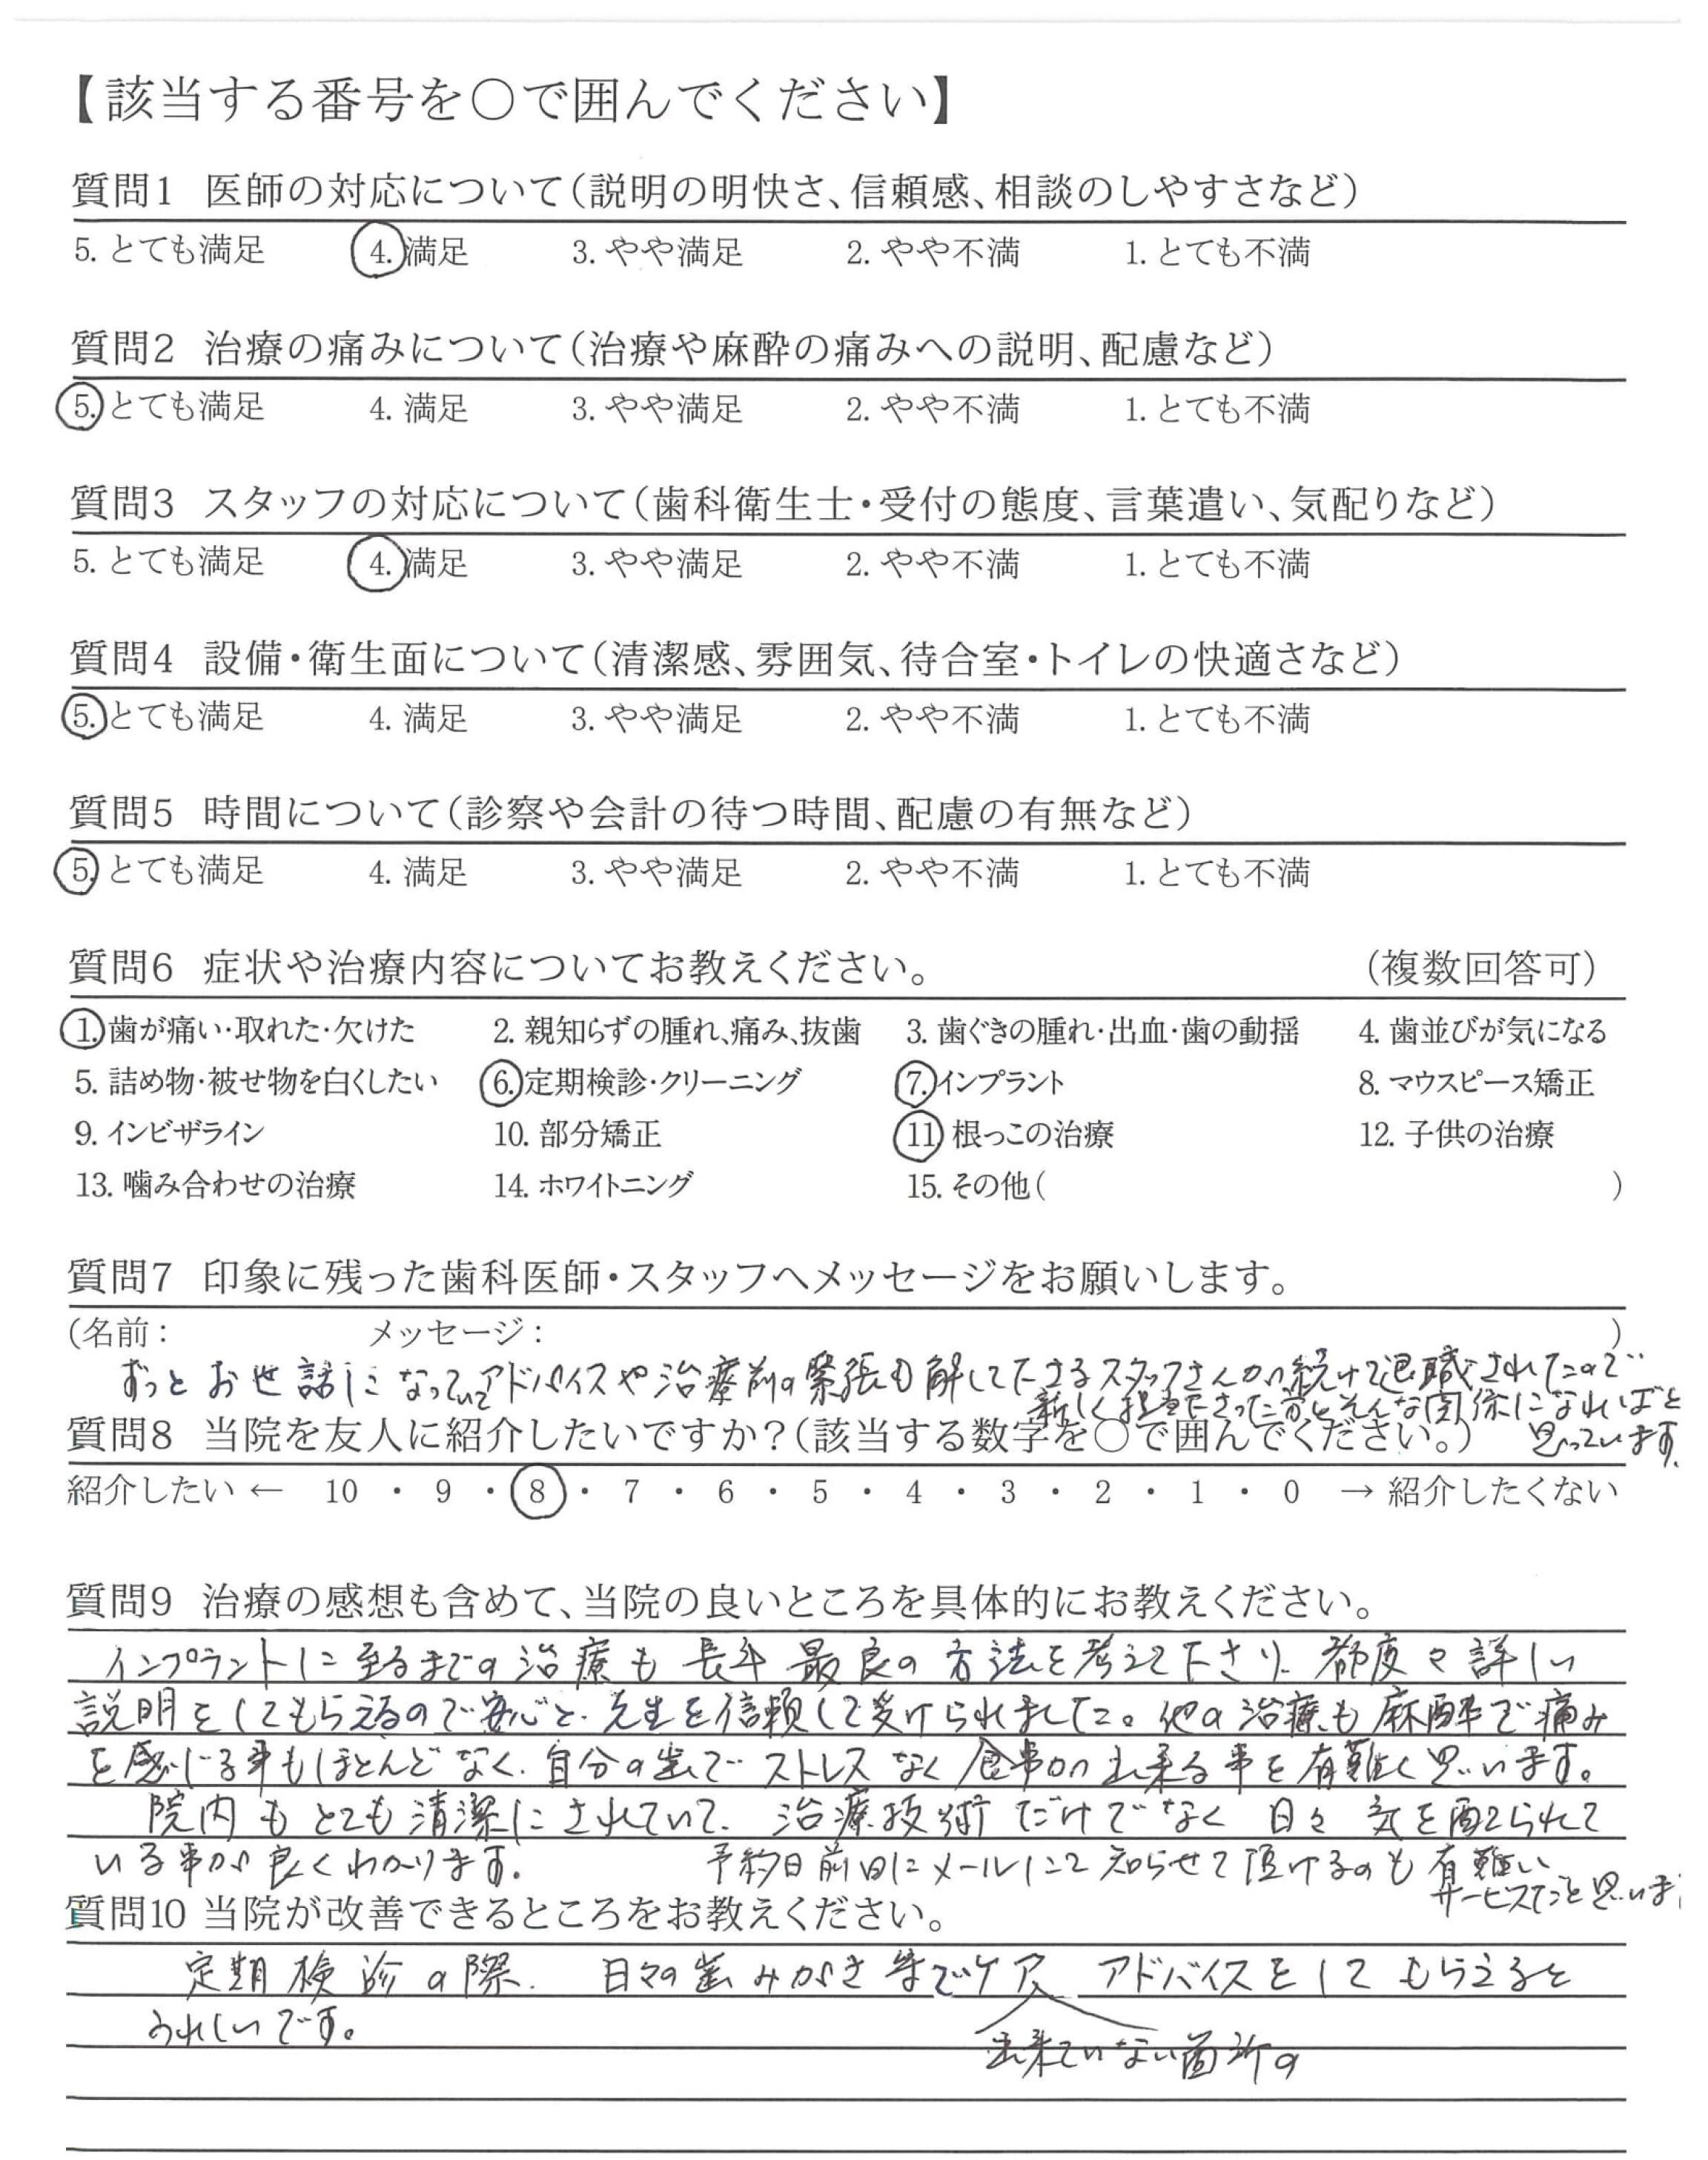 【該当する番号を〇で囲んでください】
質問1 医師の対応について(説明の明快さ、信頼感、相談のしやすさなど)
5. とても満足 4. 満足 3. やや満足 2. やや不満 1. とても不満
質問2 治療の痛みについて(治療や麻酔の痛みへの説明、配慮など)
5. とても満足 4. 満足 3. やや満足 2. やや不満 1. とても不満
質問3 スタッフの対応について(歯科衛生士・受付の態度、言葉遣い、気配りなど)
5. とても満足 4. 満足 3. やや満足 2. やや不満 1. とても不満
質問4 設備・衛生面について(清潔感、雰囲気、待合室・トイレの快適さなど)
5. とても満足 4. 満足 3. やや満足 2. やや不満 1. とても不満
質問5 時間について(診察や会計の待つ時間、配慮の有無など)
5. とても満足 4. 満足 3. やや満足 2. やや不満 1. とても不満
質問6 症状や治療内容についてお教えください。 (複数回答可)
1. 歯が痛い・取れた・欠けた 2. 親知らずの腫れ、痛み、抜歯 3. 歯ぐきの腫れ・出血・歯の動揺 4. 歯並びが気になる
5. 詰め物・被せ物を白くしたい 6. 定期検診・クリーニング 7. インプラント 8. マウスピース矯正
9. インビザライン 10. 部分矯正 11. 根っこの治療 12. 子供の治療
13. 噛み合わせの治療 14. ホワイトニング 15. その他( )
質問7 印象に残った歯科医師・スタッフへメッセージをお願いします。
(名前: メッセージ: )
ずっとお世話になっていてアドバイスや治療前の緊張も解して下さるスタッフさんが続けて退職されたので
新しく担当下さった方とそんな関係になれればと
思っています。
質問8 当院を友人に紹介したいですか?(該当する数字を〇で囲んでください。)
紹介したい ← 10 ・ 9 ・ 8 ・ 7 ・ 6 ・ 5 ・ 4 ・ 3 ・ 2 ・ 1 ・ 0 → 紹介したくない
質問9 治療の感想も含めて、当院の良いところを具体的にお教えください。
インプラントに至るまでの治療も長年最良の方法を考えて下さり、都度々詳しい
説明をしてもらえるので安心と、先生を信頼して受けられました。他の治療も麻酔で痛み
を感じる事もほとんどなく、自分の歯でストレスなく食事が出来る事を有難く思います。
院内もとても清潔にされていて、治療技術だけでなく日々気を配られて
いる事が良くわかります。 予約日前日にメールにて知らせて頂けるのも有難い
サービスだと思いま
質問10 当院が改善できるところをお教えください。
定期検診の際、日々の歯みがき等でケア アドバイスをしてもらえると
うれしいです。
出来ていない箇所の